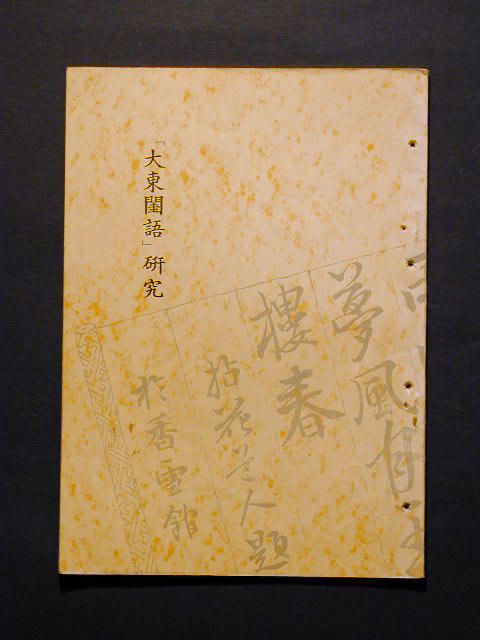 「大東閨語」研究
夢風月
樓春
拈花道人題
於香雪館